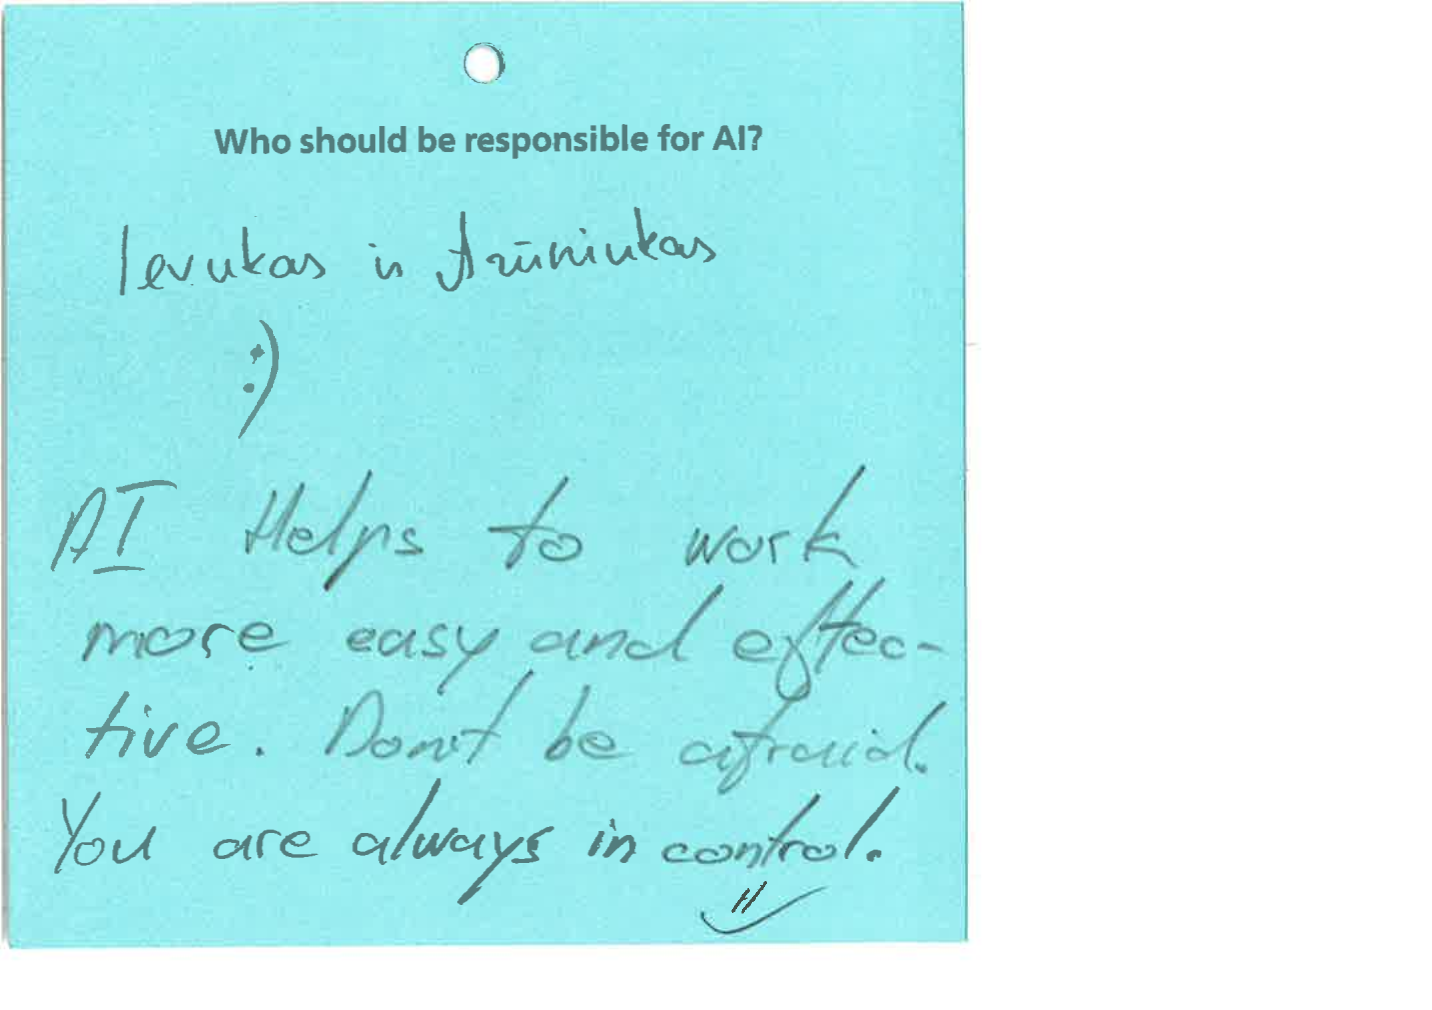 Who should be responsible for AI?
Ievukas ir Arūniukas
:)
AI Helps to work
more easy and effec-
tive. Don't be afraid.
You are always in control.